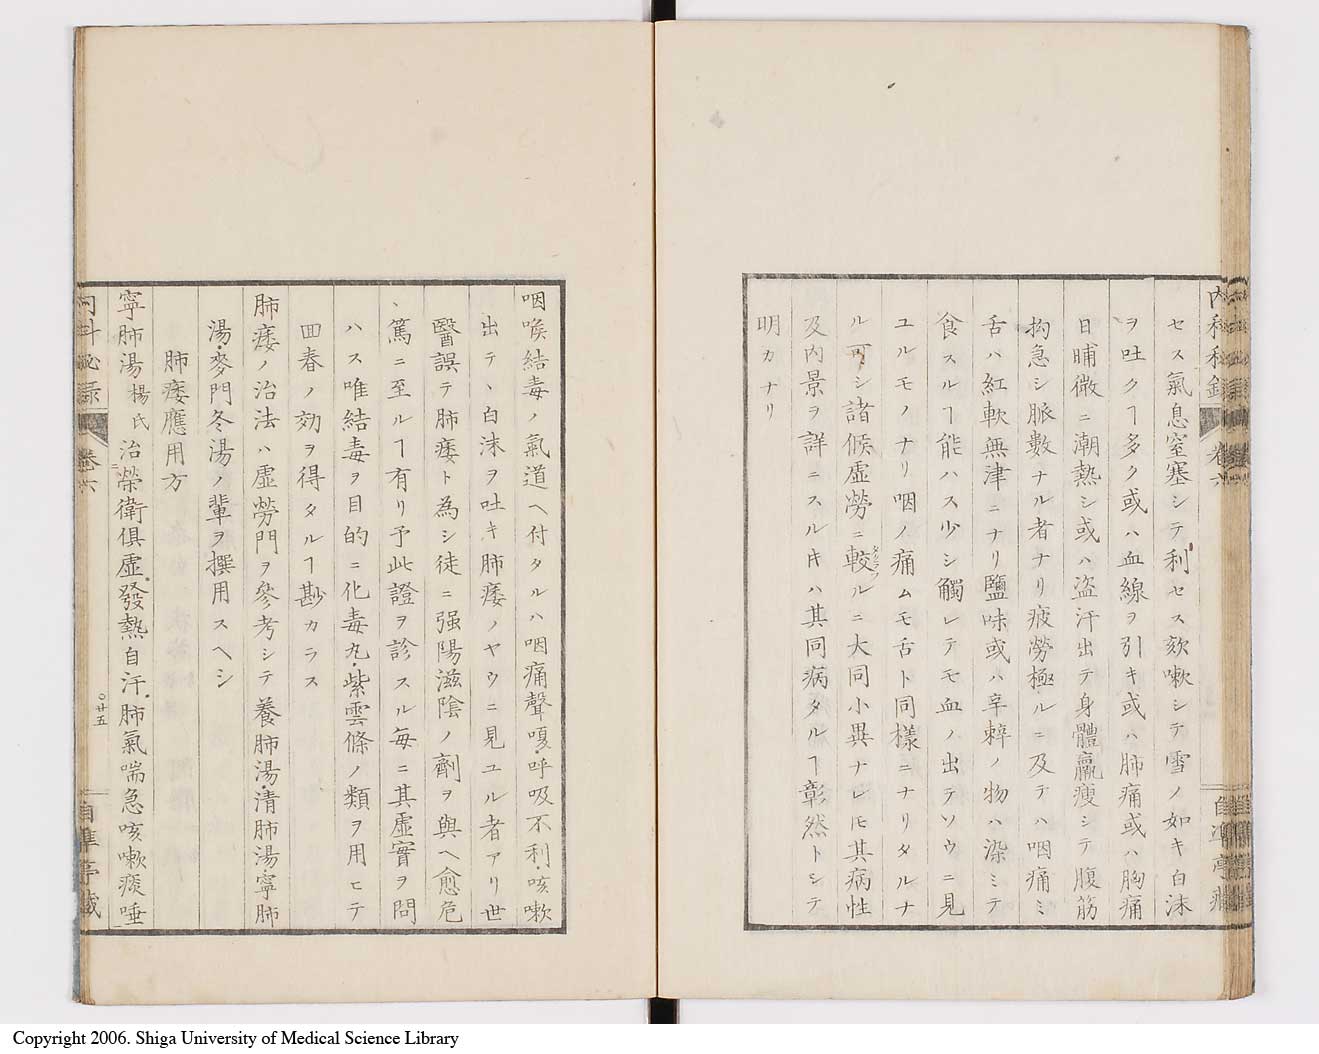 内科秘録 卷六
セス氣息窒塞シテ利セス欬嗽シテ雪ノ如キ白沫
ヲ吐クヿ多ク或ハ血線ヲ引キ或ハ肺痛或ハ胸痛
日晡微ニ潮熱シ或ハ盗汗出テ身體羸瘦シテ腹筋
拘急シ脈數ナル者ナリ疲勞極ルニ及テハ咽痛ミ
舌ハ紅軟無津ニナリ鹽味或ハ辛辢ノ物ハ染ミテ
食スルヿ能ハス少シ觸レテモ血ノ出テソウニ見
ユルモノナリ咽ノ痛ムモ舌ト同樣ニナリタルナ
ル可シ諸候虚勞ニ較ルニ大同小異ナレ𪜈其病性
クラフ
及內景ヲ詳ニスルキハ其同病タルヿ彰然トシテ
明カナリ
咽喉結毒ノ氣道ヘ付タルハ咽痛聲嗄呼吸不利咳嗽
出テヽ白沫ヲ吐キ肺痿ノヤウニ見ユル者アリ世
醫誤テ肺痿ト為シ徒ニ强陽滋陰ノ劑ヲ與ヘ愈危
篤ニ至ルヿ有リ予此證ヲ診スル每ニ其虛實ヲ問
ハス唯結毒ヲ目的ニ化毒丸紫雲條ノ類ヲ用ヒテ
回春ノ効ヲ得タルヿ尠カラス
肺痿ノ治法ハ虛勞門ヲ參考シテ養肺湯清肺湯寧肺
湯麥門冬湯ノ輩ヲ撰用スヘシ
肺痿應用方
寧肺湯 楊氏 治榮衛俱虛發熱自汗肺氣喘急咳嗽痰唾
内科秘録 卷六 廿五 自準亭藏
Copyright 2006. Shiga University of Medical Science Library